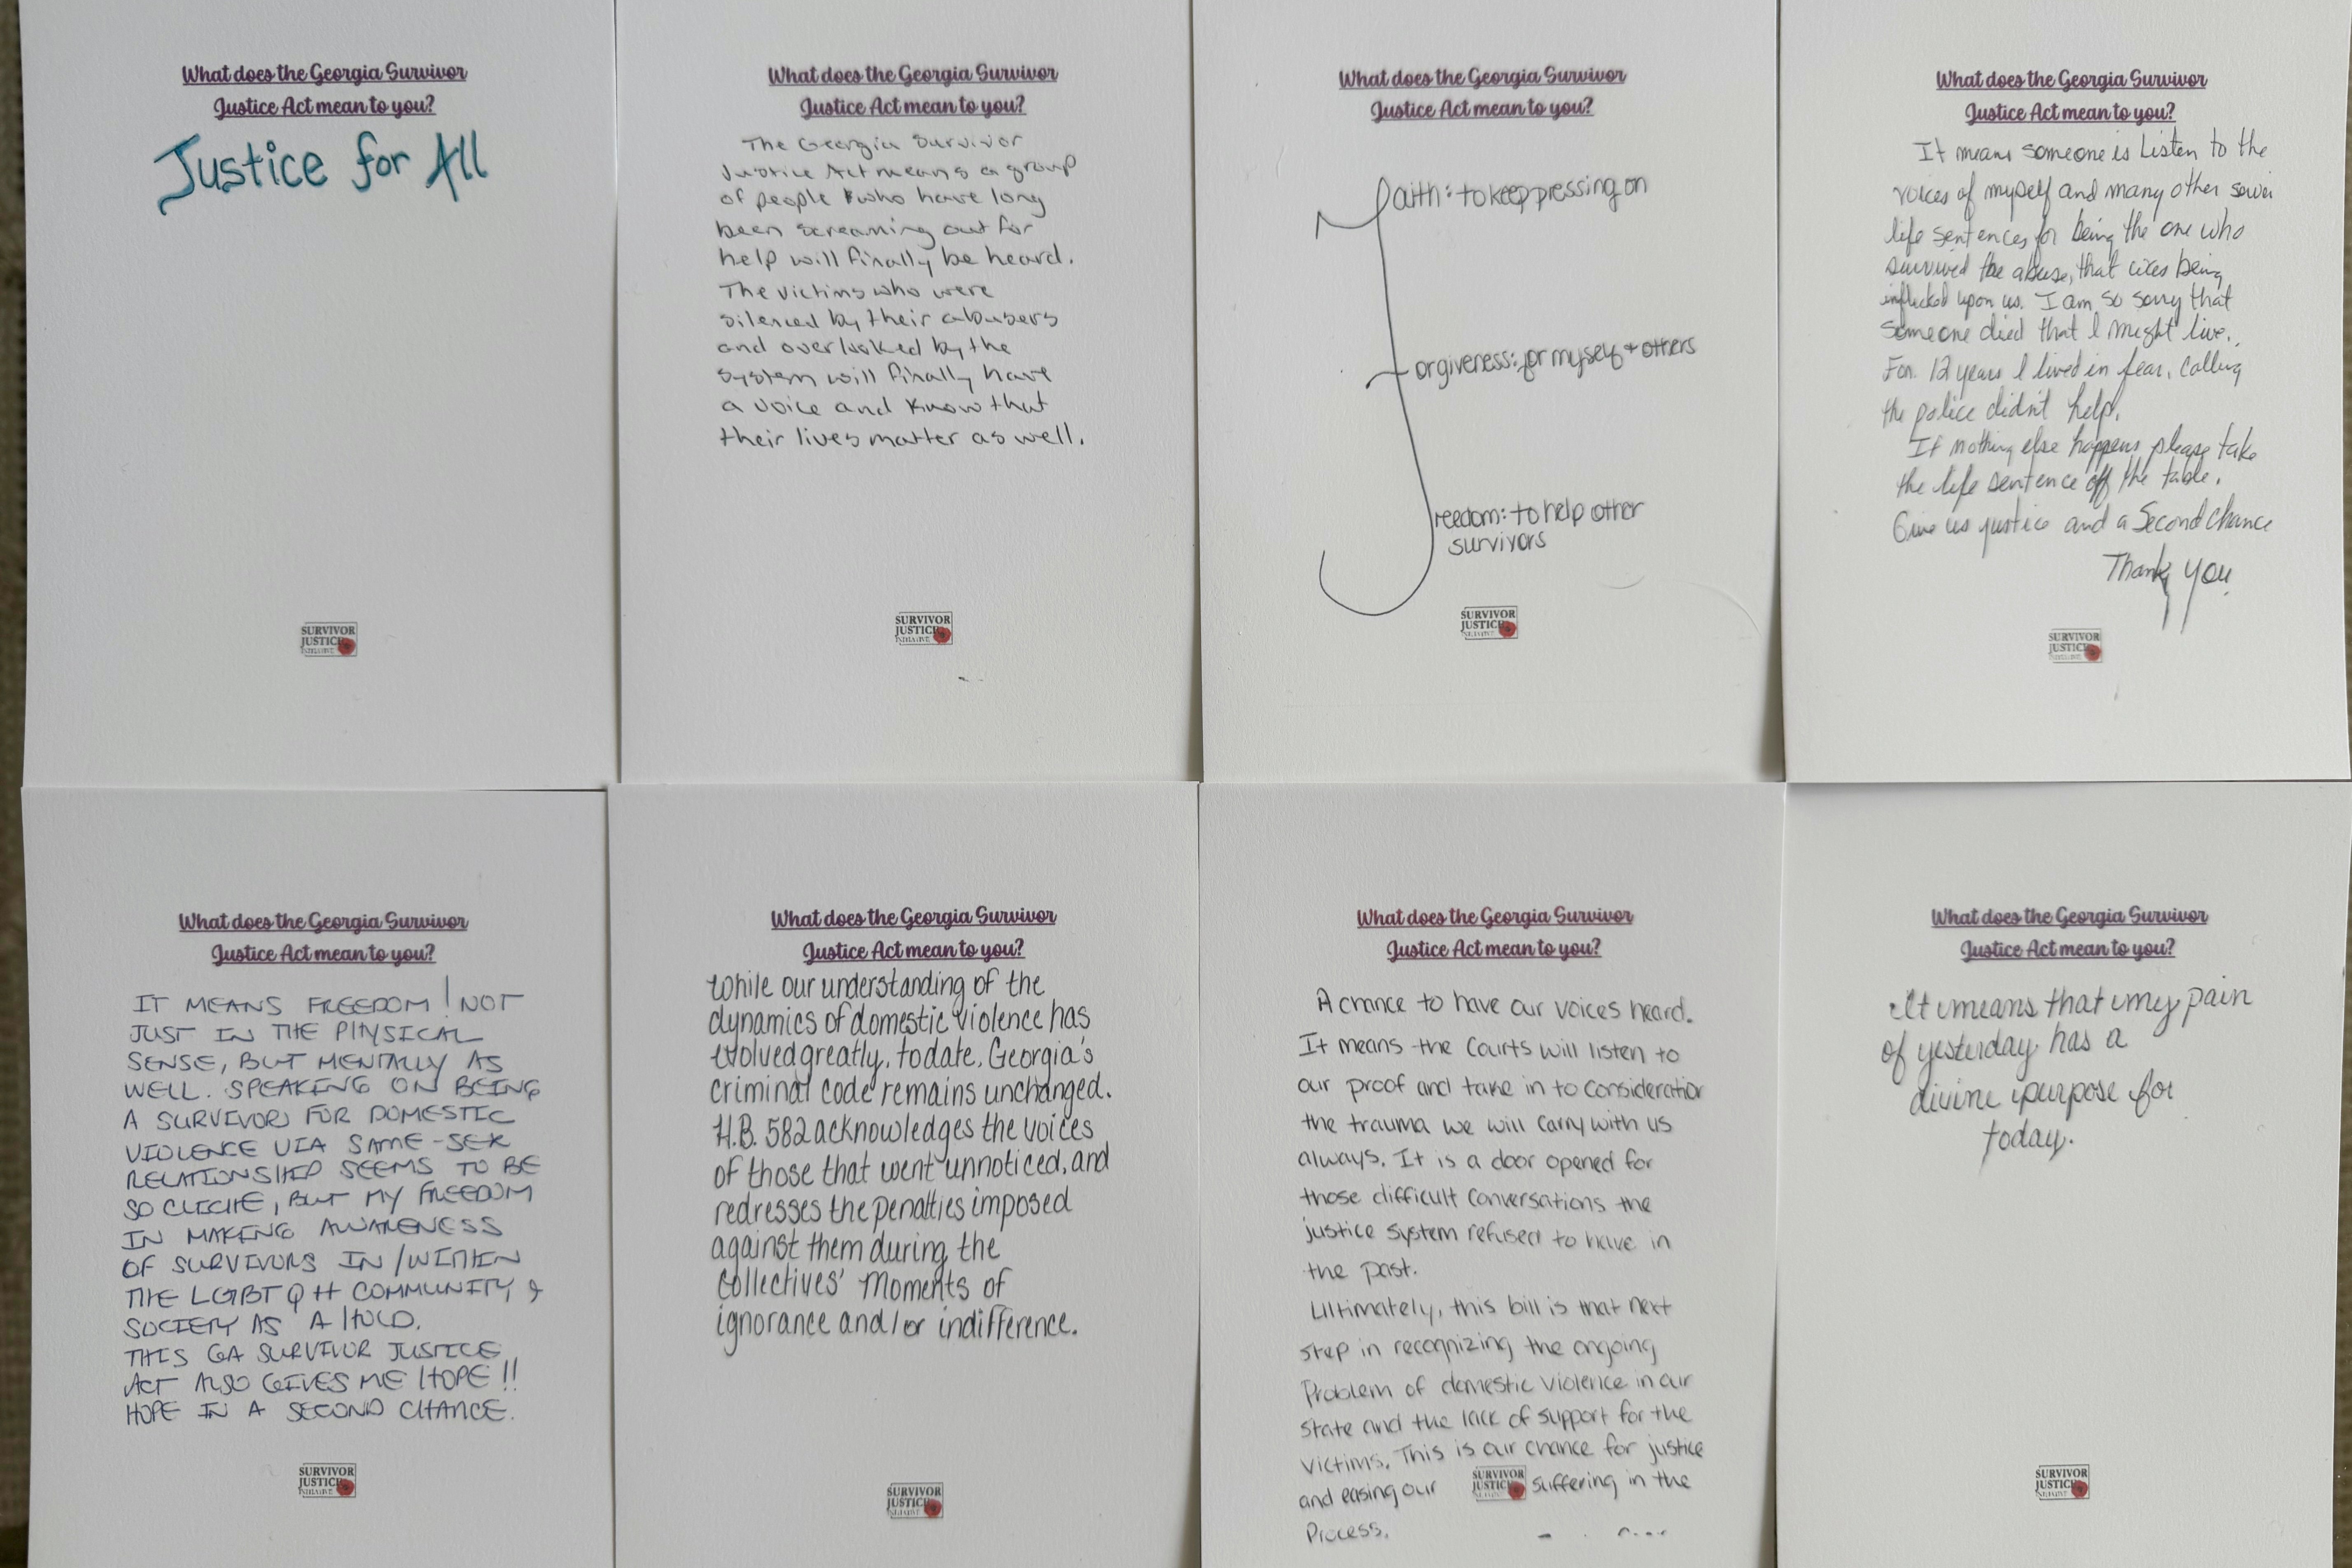 What does the Georgia Survivor
Justice Act mean to you?
Justice for All
SURVIVOR
JUSTICE
INITIATIVE
What does the Georgia Survivor
Justice Act mean to you?
The Georgia Survivor
Justice Act means a group
of people who have long
been screaming out for
help will finally be heard.
The victims who were
silenced by their abusers
and overlooked by the
system will finally have
a voice and know that
their lives matter as well.
SURVIVOR
JUSTICE
INITIATIVE
What does the Georgia Survivor
Justice Act mean to you?
faith: to keep pressing on
forgiveness: for myself + others
freedom: to help other
survivors
SURVIVOR
JUSTICE
INITIATIVE
What does the Georgia Survivor
Justice Act mean to you?
It means someone is Listen to the
voices of myself and many other
life sentences for being the one who
survived the abuse, that was being
inflicted upon us. I am so sorry that
someone died that I might live.
For 12 years I lived in fear, calling
the police didn't help.
If nothing else happens please take
the life sentence off the table.
Give us justice and a Second Chance
Thank you
SURVIVOR
JUSTICE
INITIATIVE
What does the Georgia Survivor
Justice Act mean to you?
IT MEANS FREEDOM! NOT
JUST IN THE PHYSICAL
SENSE, BUT MENTALLY AS
WELL. SPEAKING ON BEING
A SURVIVOR FOR DOMESTIC
VIOLENCE VIA SAME-SEX
RELATIONSHIP SEEMS TO BE
SO CLICHE, BUT MY FREEDOM
IN MAKING AWARENESS
OF SURVIVORS IN/WITHIN
THE LGBTQ++ COMMUNITY &
SOCIETY AS A HOLD.
THIS GA SURVIVOR JUSTICE
ACT ALSO GIVES ME HOPE!!
HOPE IN A SECOND CHANCE.
SURVIVOR
JUSTICE
INITIATIVE
What does the Georgia Survivor
Justice Act mean to you?
While our understanding of the
dynamics of domestic violence has
evolved greatly, to date, Georgia's
criminal code remains unchanged.
H.B. 582 acknowledges the voices
of those that went unnoticed, and
redresses the penalties imposed
against them during the
collectives' moments of
ignorance and/or indifference.
SURVIVOR
JUSTICE
INITIATIVE
What does the Georgia Survivor
Justice Act mean to you?
A chance to have our voices heard.
It means the Courts will listen to
our proof and take in to consideration
the trauma we will carry with us
always. It is a door opened for
those difficult conversations the
justice system refused to have in
the past.
Ultimately, this bill is that next
step in recognizing the ongoing
Problem of domestic violence in our
State and the lack of support for the
victims. This is our chance for justice
and easing our suffering in the
Process.
SURVIVOR
JUSTICE
INITIATIVE
What does the Georgia Survivor
Justice Act mean to you?
It means that my pain
of yesterday has a
divine purpose for
today.
SURVIVOR
JUSTICE
INITIATIVE